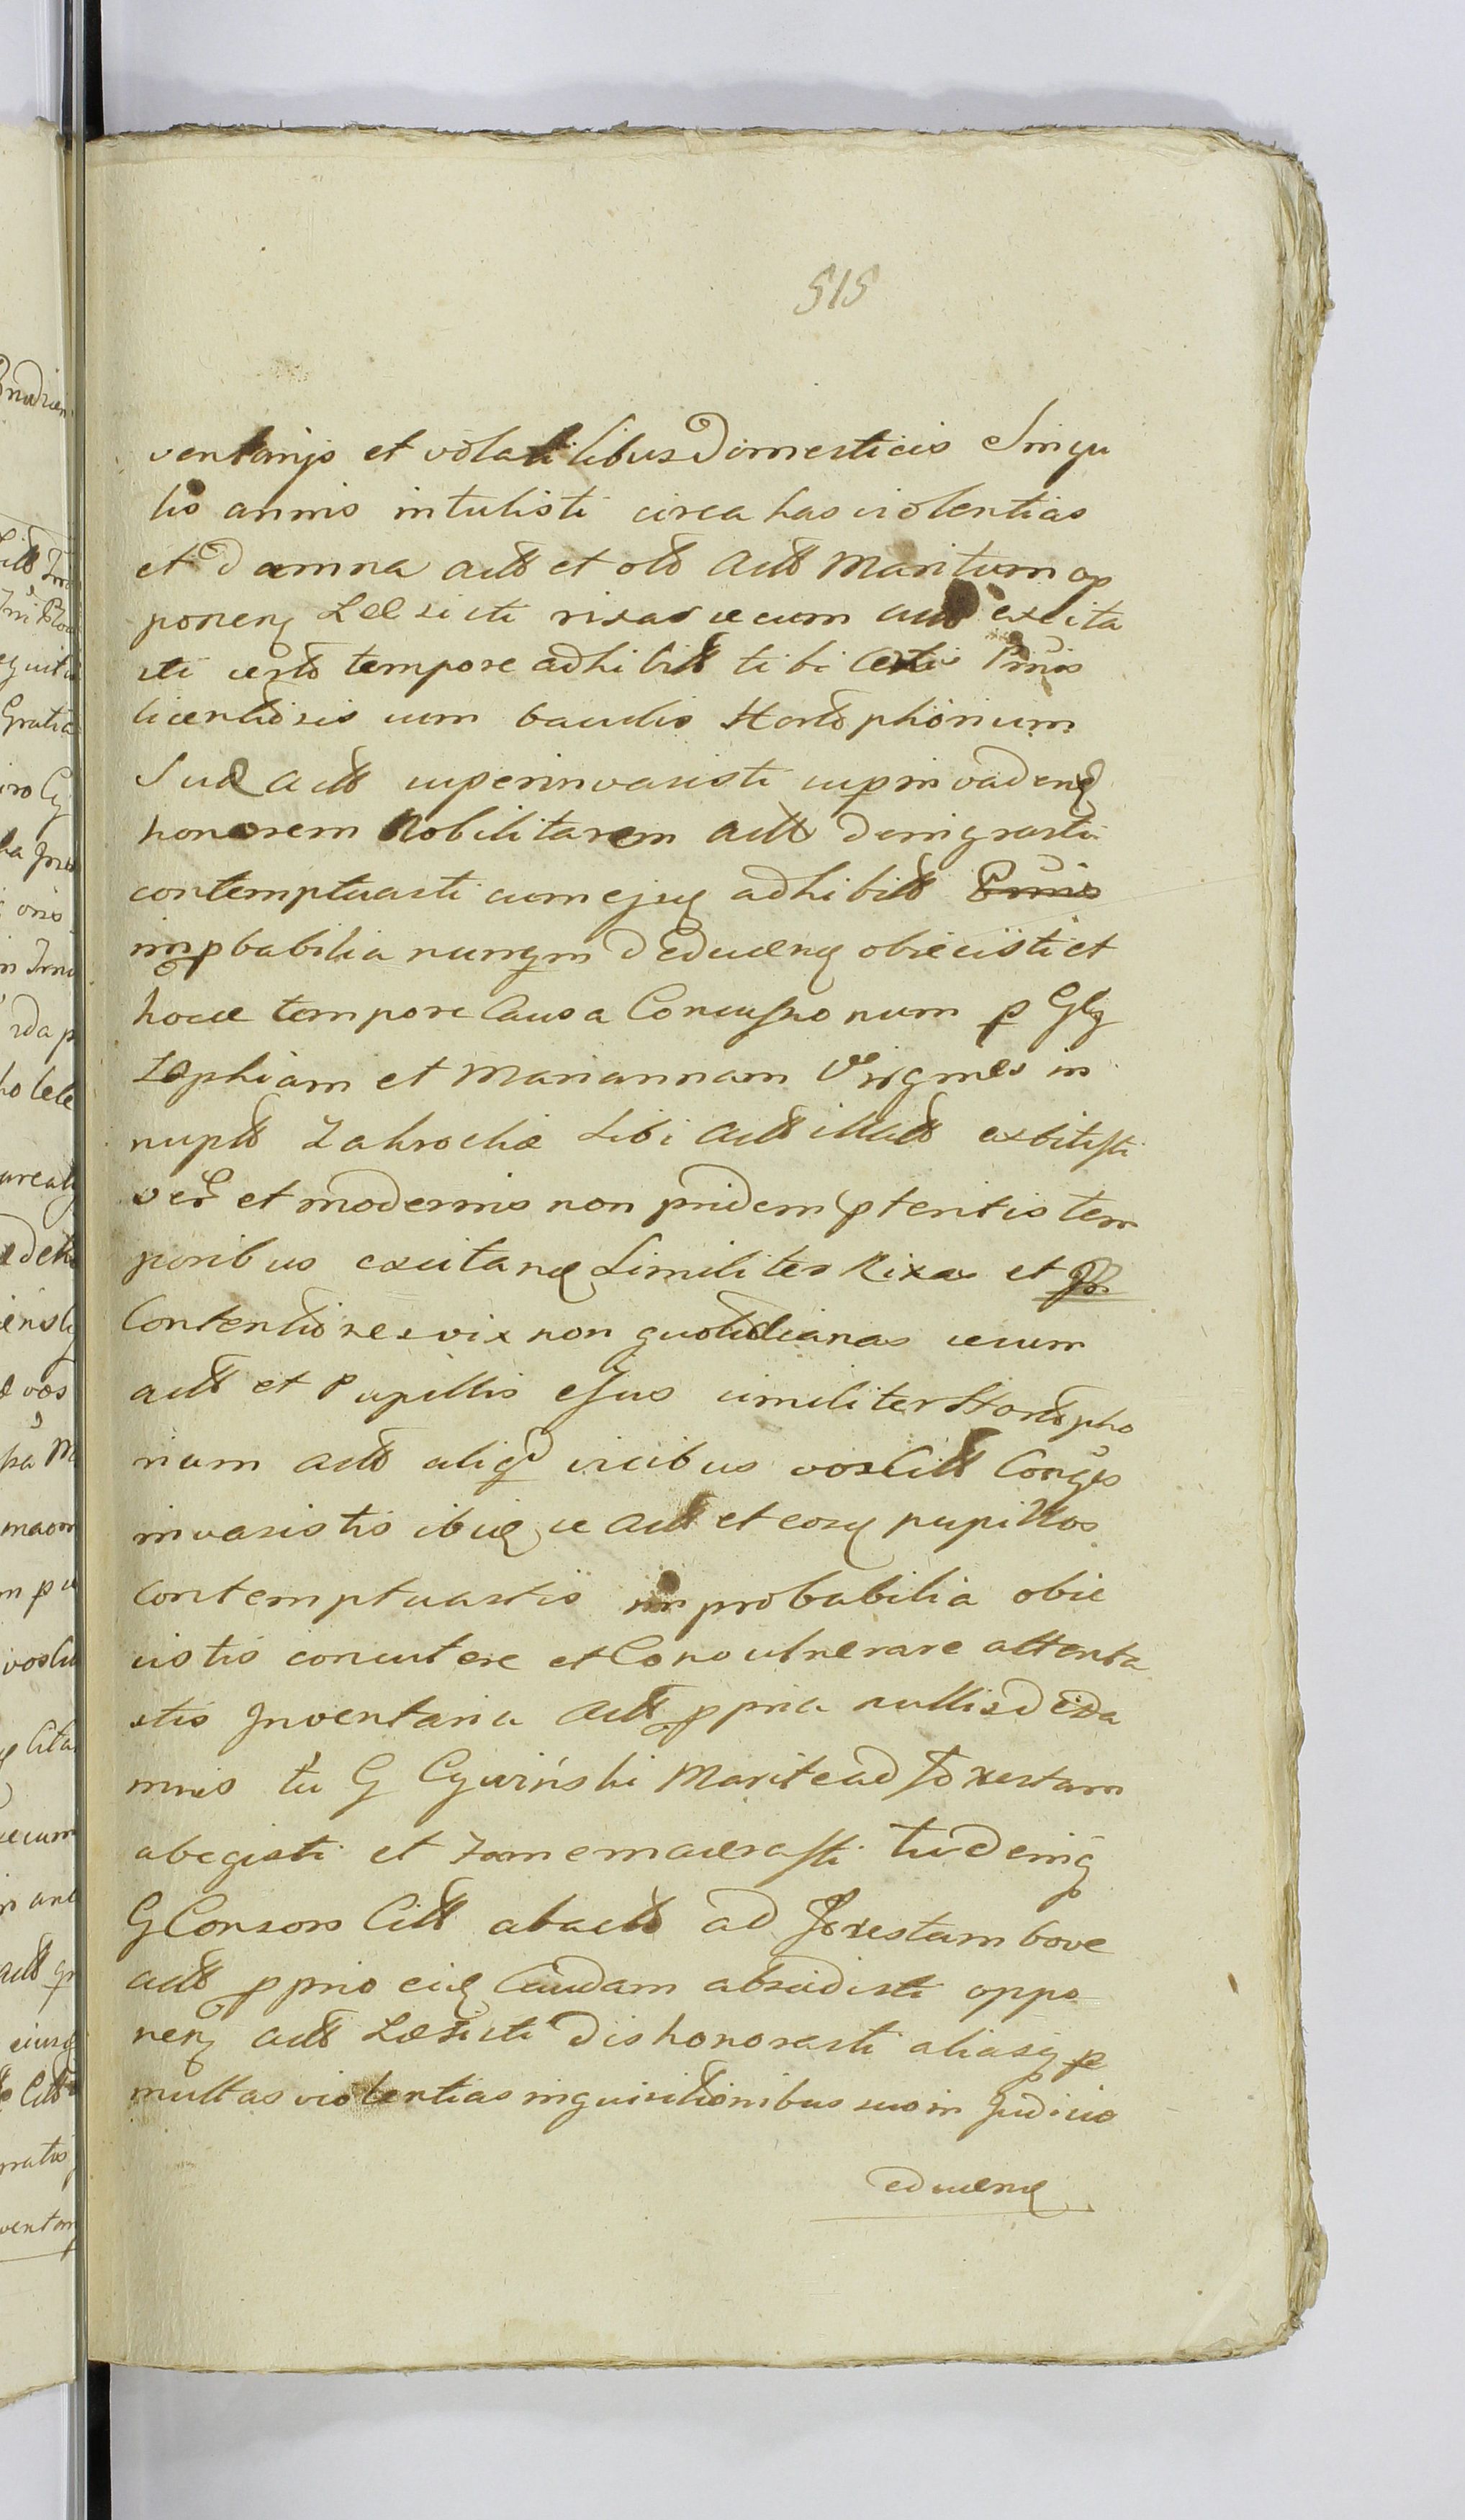 515
ventarijs et volatilibus Domesticis Singu
lis annis intulisti circa has violentias
et Damna actt et olt actt Maritum op
ponenę Læsisti rixas cum actt excita
sti certo tempore adhibitt tibi certis Pnnis
licentiosis cum baculis Hortophorium
Suæ actt superinvasisti supinvadenę
honorem Nobilitarem actt denigrasti
contemptuasti eamejsę adhibitt
impbabilia nunqm deducenę obiecisti et
hocce tempore Causa Concussionum p Gsę
Zophiam et Mariannam Virgines in
nuptt Zakrockie Sibi actt illatt exbitisti
vero et modernis non pridem pteritis tem
poribus excitanę similiter Rixas et
Contentiones vix non quotidianas cum
actt et Pupillis ejus similiter Hortopho
rium actt aliqd vicibus vos Citt Conges
invasistis ibię ce actt et eosę pupillos
contemptuastis improbabilia obie
cistis concutere et Convulnerare attenta
stis Inventaria actt ppria nullis deda
mnis tu G Cywiński Marite ad forestam
abegisti et fame macerasti tu deniq
G Consors Citt abacto ad forestam bove
actt pprio eię Caudam abscidisti oppo
nenę actt Læsisti dishonorasti aliasq p
multas violentias inquisitionibus suo in Judicio
educenę